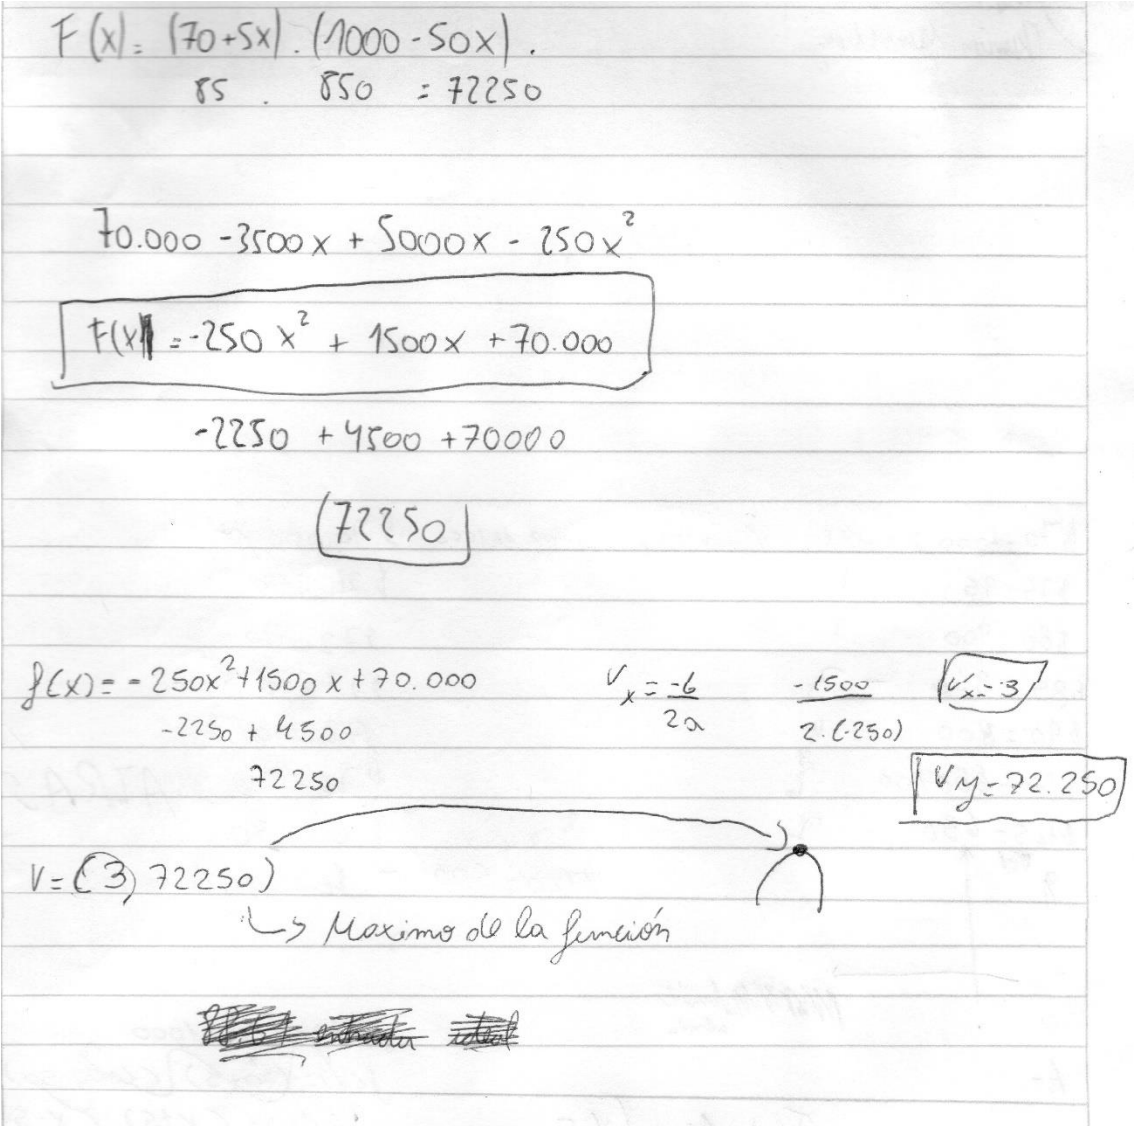 F(x) = (70+5x) . (1000-50x) .
85 . 850 = 72250
70.000 -3500x + 5000x - 250x²
F(x) = -250x² + 1500x + 70.000
-2250 + 4500 +70000
72250
f(x) = -250x²+1500x+70.000 Vx = -b/2a -1500/2.(-250) Vx=3
-2250 + 4500
72250 Vy=72.250
V=(3, 72250)
↳ Maximo de la función